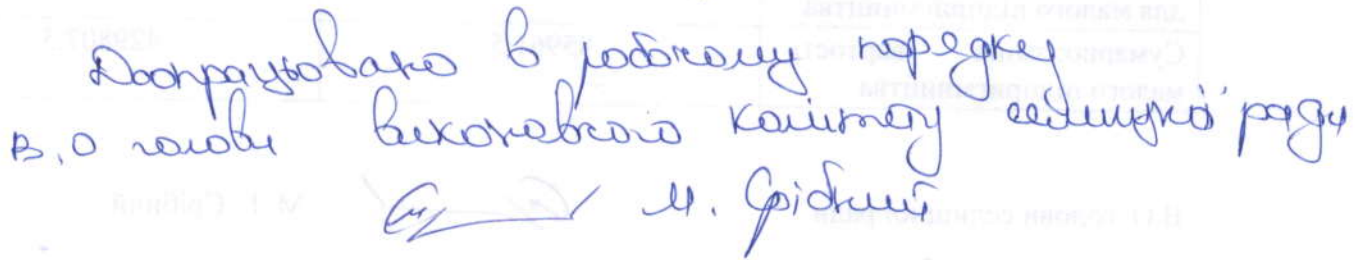 Доопрацьовано в робочому порядку
В.О голови виконавчого комітету селищної ради
М. Срібний